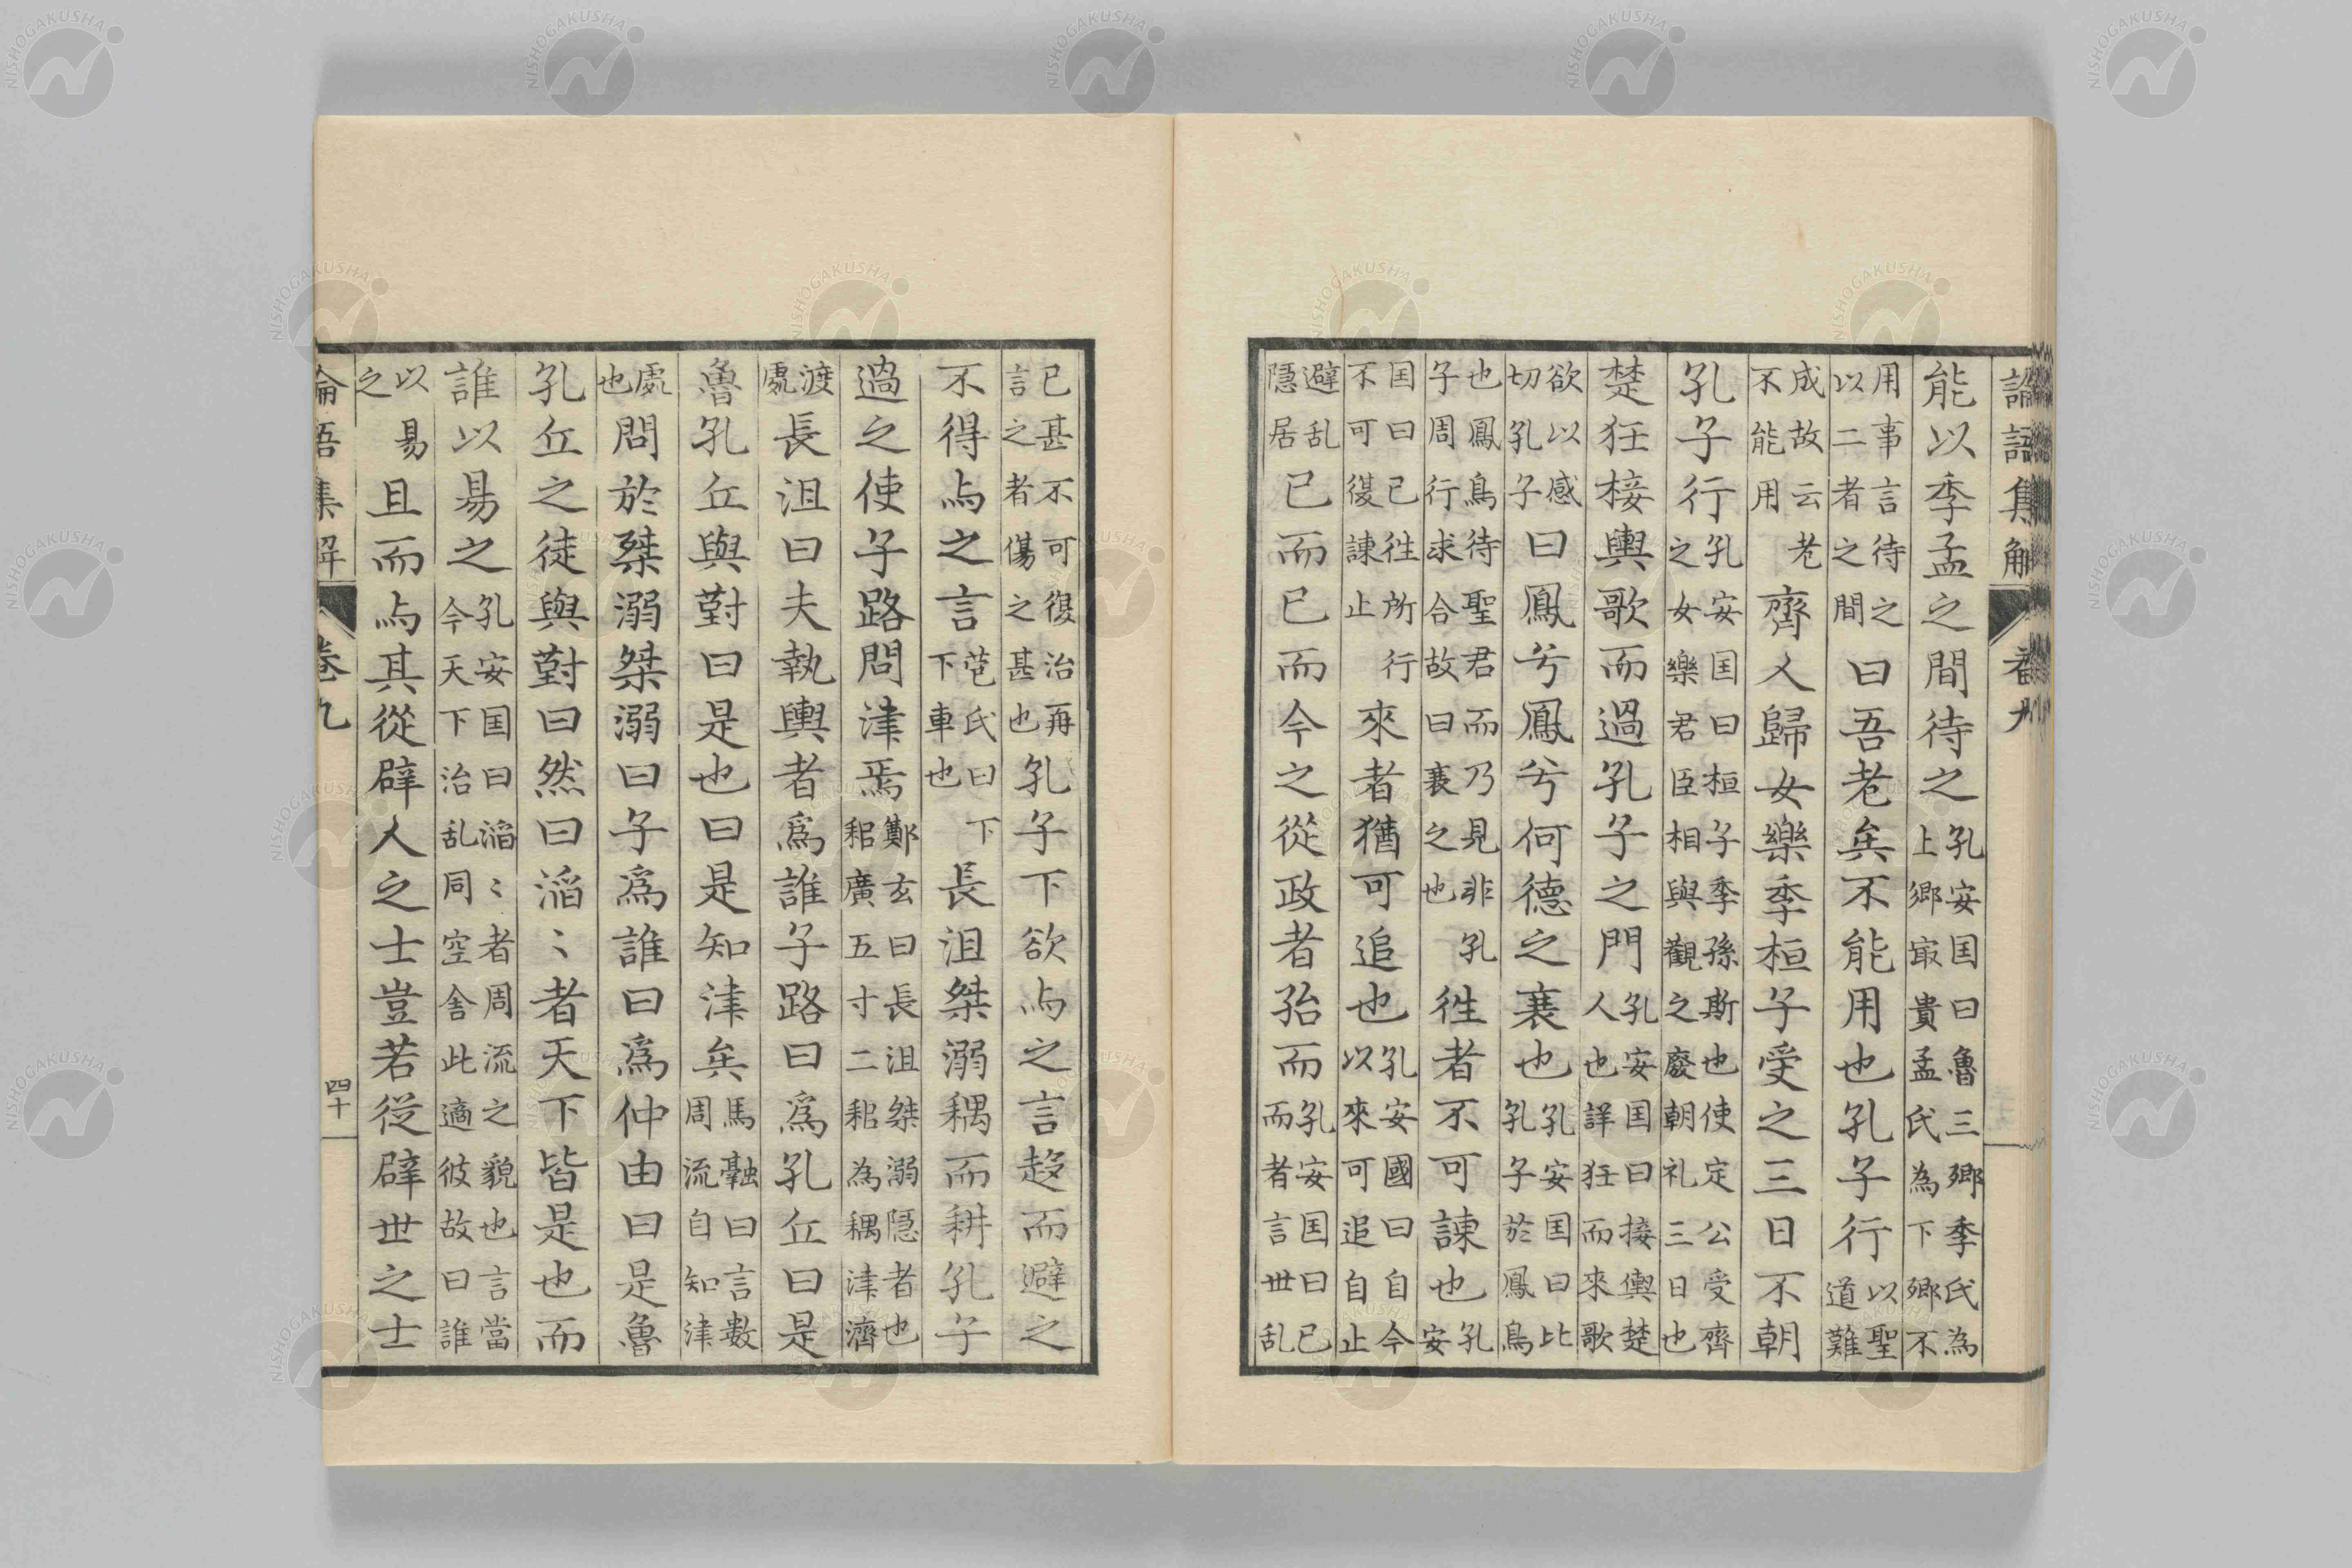 論語集解 卷九
能以季孟之間待之孔安囯曰魯三卿季氏為上卿冣貴孟氏為下卿不
用事言待之以二者之間曰吾老矣不能用也孔子行以聖道難
成故云老不能用齊人歸女樂季桓子受之三日不朝
孔子行孔安囯曰桓子季孫斯也使定公受齊之女樂君臣相與觀之廢朝礼三日也
楚狂接輿歌而過孔子之門孔安囯曰接輿楚人也詳狂而來歌
欲以感切孔子曰鳳兮鳳兮何德之衰也孔安囯曰比孔子於鳳鳥
也鳳鳥待聖君而乃見非孔子周行求合故曰衰之也往者不可諫也孔安
囯曰已往所行不可復諫止來者猶可追也孔安國曰自今以來可追自止
避乱隠居已而已而今之從政者殆而孔安囯曰已而者言世乱
已甚不可復治再言之者傷之甚也孔子下欲与之言趍而避之
不得与之言苞氏曰下下車也長沮桀溺耦而耕孔子
過之使子路問津焉鄭玄曰長沮桀溺隠者也耜廣五寸二耜為耦津濟
渡處長沮曰夫執輿者爲誰子路曰爲孔丘曰是
魯孔丘與對曰是也曰是知津矣馬融曰言數周流自知津
處也問於桀溺桀溺曰子爲誰曰爲仲由曰是魯
孔丘之徒與對曰然曰滔〻者天下皆是也而
誰以易之孔安囯曰滔〻者周流之皃也言當今天下治乱同空舎此適彼故曰誰
以易之且而与其從辟人之士豈若從辟世之士
論語集解 卷九 四十
NISHOGAKUSHA